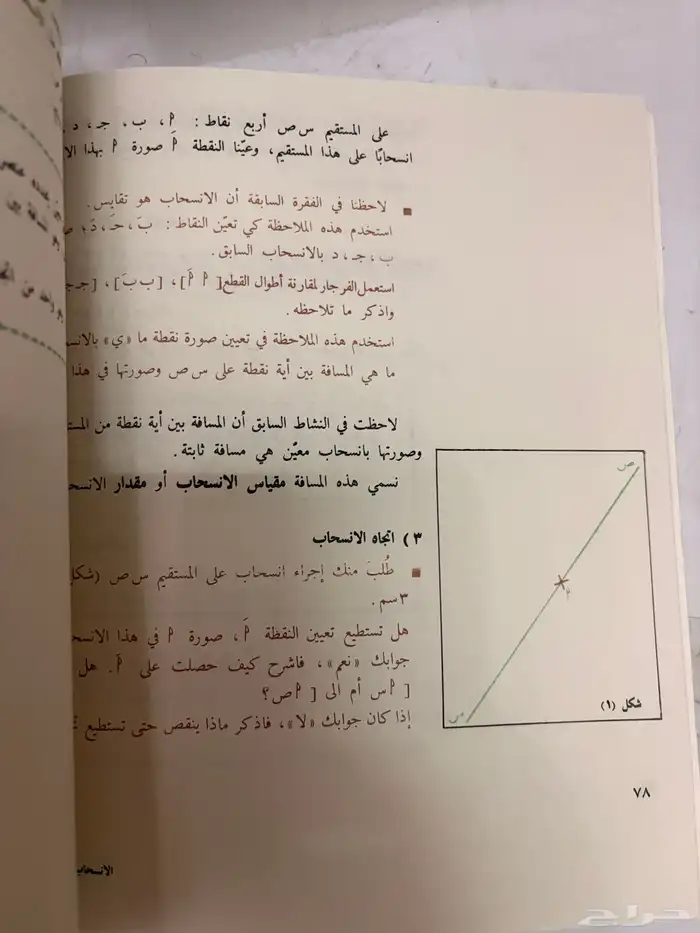 على المستقيم س ص أربع نقاط : أ ، ب ، جـ ، د
انسحابًا على هذا المستقيم، وعيّنا النقطة أَ صورة أ بهذا
لاحظنا في الفقرة السابقة أن الانسحاب هو تقايس.
استخدم هذه الملاحظة كي تعيّن النقاط : بَ ، جـَ ، دَ ،
ب ، جـ ، د بالانسحاب السابق.
استعمل الفرجار لمقارنة أطوال القطع [أ أَ]، [ب بَ]،
واذكر ما تلاحظه.
استخدم هذه الملاحظة في تعيين صورة نقطة ما «ي»
ما هي المسافة بين أية نقطة على س ص وصورتها في هذا
لاحظت في النشاط السابق أن المسافة بين أية نقطة من
وصورتها بانسحاب معيّن هي مسافة ثابتة.
نسمي هذه المسافة مقياس الانسحاب أو مقدار
٣ ) اتجاه الانسحاب
طُلبَ منك إجراء انسحاب على المستقيم س ص
٣ سم .
هل تستطيع تعيين النقظة أَ، صورة أ في هذا
جوابك «نعم»، فاشرح كيف حصلت على أَ. هل
[ أ س أم الى [ أ ص ؟
إذا كان جوابك «لا»، فاذكر ماذا ينقص حتى تستطيع
ص
أ
س
شكل (١)
٧٨
حراج